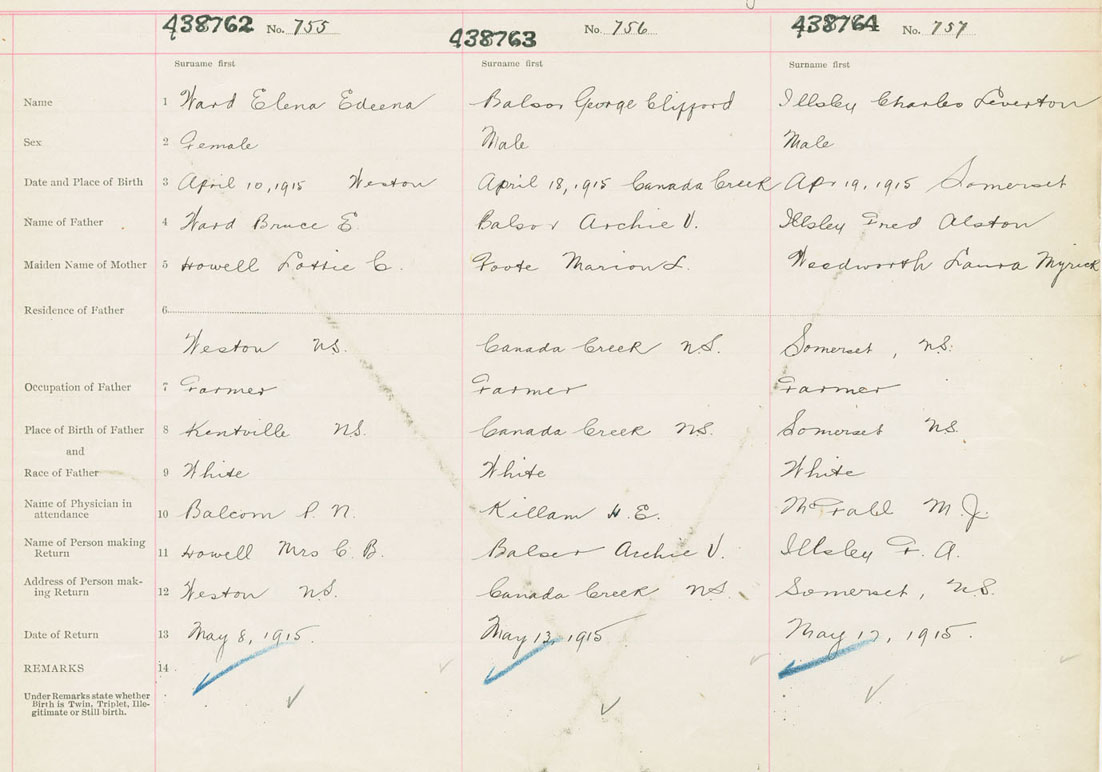 438762 No. 755 438763 No. 756 438764 No. 757
Surname first Surname first Surname first
Name 1 Ward Elena Edeena Balsor George Clifford Illsley Charles Leverton
Sex 2 Female Male Male
Date and Place of Birth 3 April 10, 1915 Weston April 18, 1915 Canada Creek Apr 19, 1915 Somerset
Name of Father 4 Ward Bruce E. Balsor Archie V. Illsley Fred Alston
Maiden Name of Mother 5 Howell Lottie C. Foote Marion L. Woodworth Laura Myrick
Residence of Father 6
Weston N.S. Canada Creek N.S. Somerset, N.S.
Occupation of Father 7 Farmer Farmer Farmer
Place of Birth of Father 8 Kentville N.S. Canada Creek N.S. Somerset N.S.
and
Race of Father 9 White White White
Name of Physician in
attendance 10 Balcom P. N. Killam H. E. M. J.
Name of Person making
Return 11 Howell Mrs C. B. Balser Archie V. Illsley F. A.
Address of Person mak-
ing Return 12 Weston N.S. Canada Creek N.S. Somerset, N.S.
Date of Return 13 May 8, 1915. May 13, 1915 May 1915.
REMARKS 14
Under Remarks state whether
Birth is Twin, Triplet, Ille-
gitimate or Still birth.